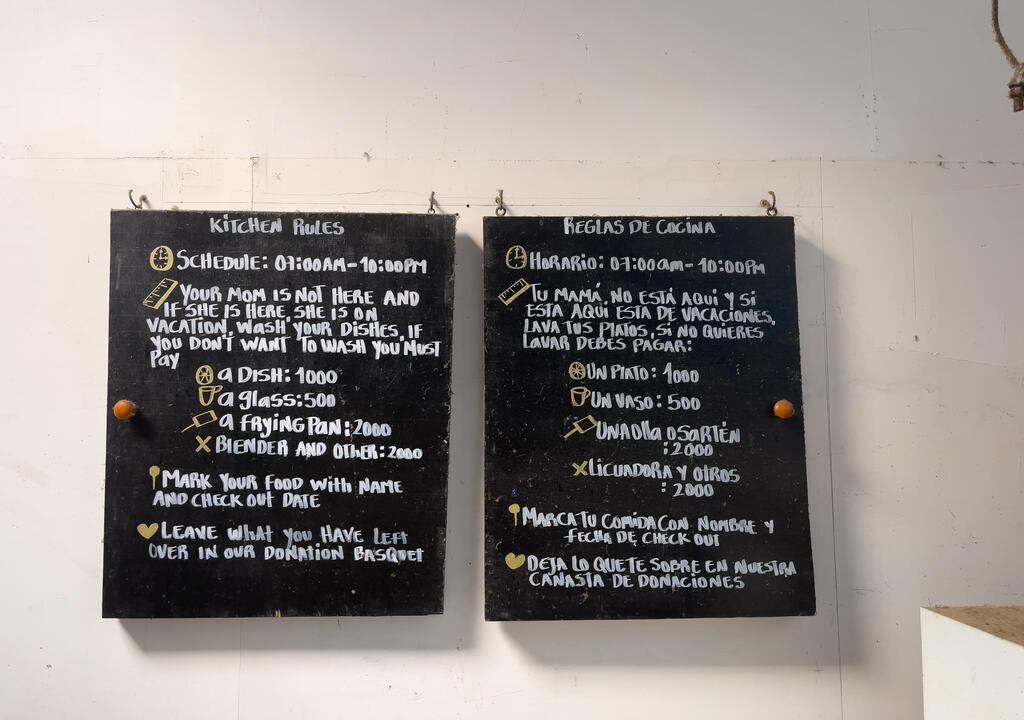 KITCHEN RULES
SCHEDULE: 07:00AM-10:00PM
YOUR MOM IS NOT HERE AND
IF SHE IS HERE, SHE IS ON
VACATION, WASH YOUR DISHES, IF
YOU DON'T WANT TO WASH YOU MUST
PAY
A DISH: 1000
A GLASS: 500
A FRYING PAN: 2000
BLENDER AND OTHER: 2000
MARK YOUR FOOD WITH NAME
AND CHECK OUT DATE
LEAVE WHAT YOU HAVE LEFT
OVER IN OUR DONATION BASQUET
REGLAS DE COCINA
HORARIO: 07:00am-10:00PM
TU MAMÁ, NO ESTÁ AQUÍ Y SI
ESTA AQUI ESTA DE VACACIONES,
LAVA TUS PLATOS, SI NO QUIERES
LAVAR DEBES PAGAR:
UN PLATO: 1000
UN VASO: 500
UNA OLLA O SARTÉN
: 2000
LICUADORA Y OTROS
: 2000
MARCA TU COMIDA CON NOMBRE Y
FECHA DE CHECK OUT
DEJA LO QUE TE SOBRE EN NUESTRA
CANASTA DE DONACIONES